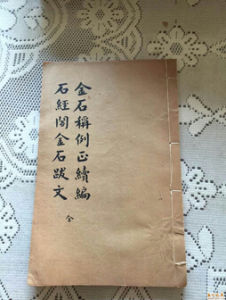 金石稱例正續編
石經閣金石跋文
全